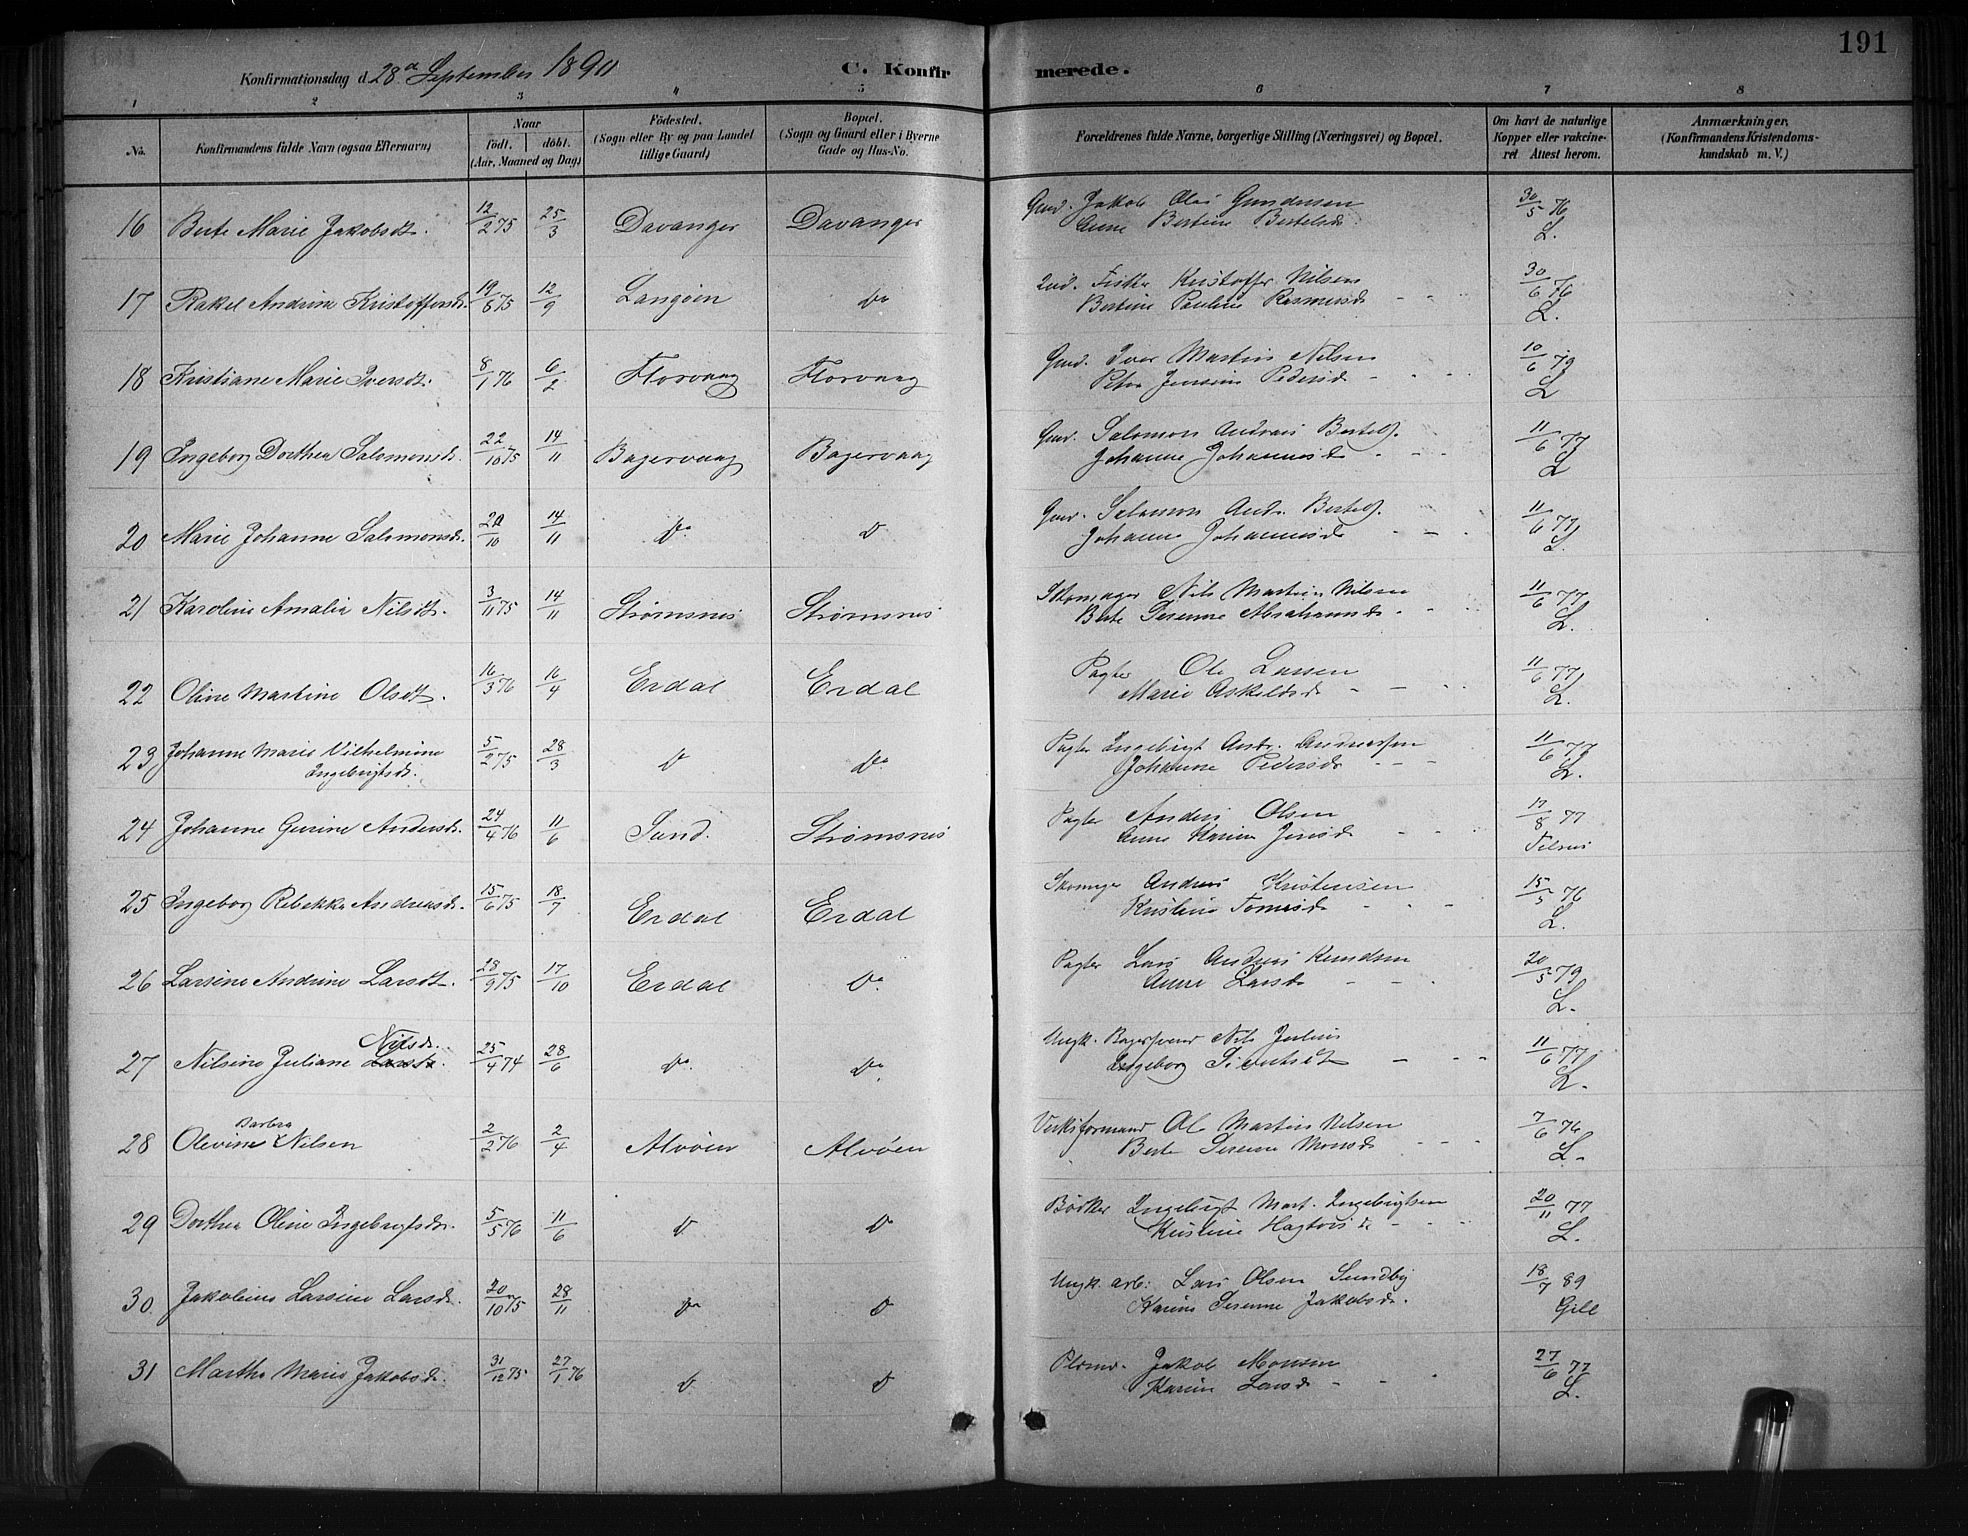 191
Konfirmationsdag d. 28de September 1890
C. Konfirmerede.
1 2 3 4 5 6 7 8
No. Konfirmandens fulde Navn (ogsaa Efternavn) Naar födt. döbt. (Aar, Maaned og Dag) Födested. (Sogn eller By og paa Landet tillige Gaard) Bopæl. (Sogn og Gaard eller i Byerne Gade og Hus-No. Forældrenes fulde Navne, borgerlige Stilling (Næringsvei) og Bopæl. Om havt de naturlige Kopper eller vakcineret Attest herom. Anmærkninger. (Konfirmandens Kristendomskundskab m. V.)
16 Berte Marie Jakobsdt. 12/2 75 25/3 Davanger Davanger Gmd. Jakob Olai Gundersen 30/5 76
Anne Bertine Bertelsdr L.
17 Rakel Andrine Kristoffersdr. 19/6 75 12/9 Langöen Do Ind. Fisker Kristoffer Nilsen 30/6 76
Bertine Pauline Rasmusdr - - L.
18 Kristiane Marie Iversdt. 8/1 76 6/2 Florvaag Florvaag Gmd. Iver Martin Nilsen 10/6 79
Petra Jensine Pedersdr - - - L
19 Ingeborg Dorthea Salomonsdr. 22/10 75 14/11 Bagervaag Bagervaag Gmd. Salomon Andreas Bertels. 11/6 77
Johanne Johannesdr - - - L
20 Marie Johanne Salomonsdr. 20/10 14/11 Do D Gmd. Salomon Andr. Bertels. 11/6 77
Johanne Johannesdr - - - L.
21 Karoline Amalia Nilsdt. 3/11 75 14/11 Strömsnes Strömsnes Skomager Nils Martin Nilsen 11/6 77
Berte Serenne Abrahamsdr - - L.
22 Oline Martine Olsdt. 16/3 76 16/4 Erdal Erdal Pagter Ole Larsen 11/6 77
Marie Askeldsdr - - - L.
23 Johanne Marie Vilhelmine 5/2 75 28/3 D Do Pagter Ingebrigt Andr. Andreassen 11/6 77
Ingebrigtsdr. Johanne Pedersdr - - - L.
24 Johanne Gurine Andersdr. 24/4 76 11/6 Sund. Strömsnes Pagter Anders Olsen 17/8 77
Anne Karine Jensdr - -
25 Ingeborg Rebekka Andreasdr. 15/6 75 18/7 Erdal Erdal Skomager Andreas Kristensen 15/5 76
Kristine Tomesdr - - - L.
26 Larsine Andrine Larsdt. 28/9 75 17/10 Erdal Do Pagter Lars Andreas Knudsen 20/5 79
Anne Larsdr - - - L.
27 Nilsine Juliane Larsdr. Nilsdr. 25/4 74 28/6 Do Do Ungk. Bagersvend Nils Julius 11/6 77
Ingeborg Sivertsdt - - - L.
28 Olevine Barbra Nilsen 2/2 76 2/4 Alvöen Alvöen Verksformand Ole Martin Nilsen 7/6 76
Berte Serenne Monsdr - - - L.
29 Dorthea Oline Ingebrigtsdr. 5/5 76 11/6 D D Bödker Ingebrigt Mart. Ingebrigtsen 20/11 77
Kristine dr - - L.
30. Jakobine Larsine Larsdr. 20/10 75 28/11 Do D Ungk. arb: Lars Olsen Sundby 18/7 89
Karine Serenne Jakobsdr. Gill
31 Martha Marie Jakobsdr. 31/12 75 27/1 76 D D Plsmd. Jakob Monsen 27/6 77
Karine Larsdr - - - L.